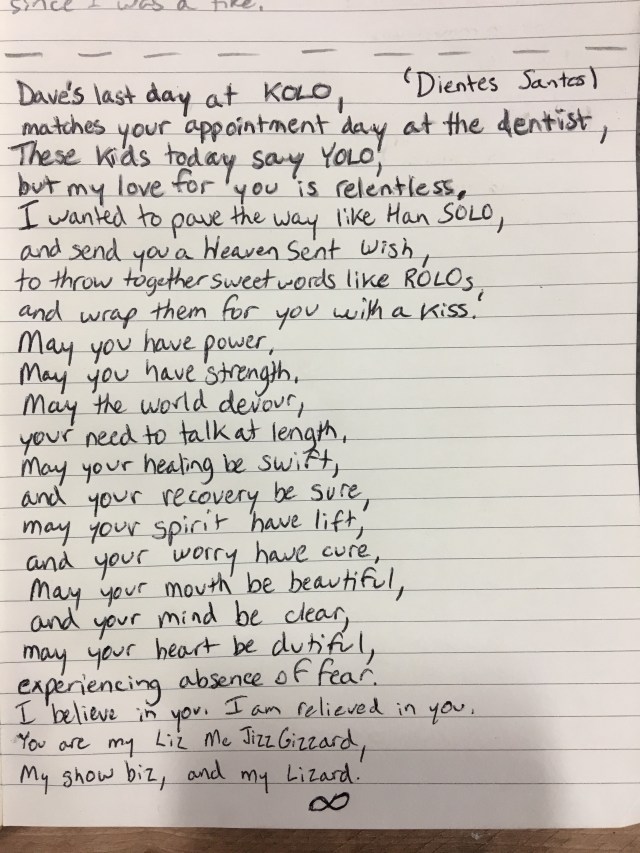 since I was a tike.
Dave's last day at KOLO, (Dientes Santos)
matches your appointment day at the dentist,
These kids today say YOLO,
but my love for you is relentless.
I wanted to pave the way like Han SOLO,
and send you a Heaven Sent wish,
to throw together sweet words like ROLOs,
and wrap them for you with a kiss.
May you have power,
May you have strength,
May the world devour,
your need to talk at length,
May your healing be swift,
and your recovery be sure,
may your spirit have lift,
and your worry have cure,
May your mouth be beautiful,
and your mind be clear,
may your heart be dutiful,
experiencing absence of fear.
I believe in you. I am relieved in you.
You are my Liz Mc Jizz Gizzard,
My show biz, and my Lizard.
∞